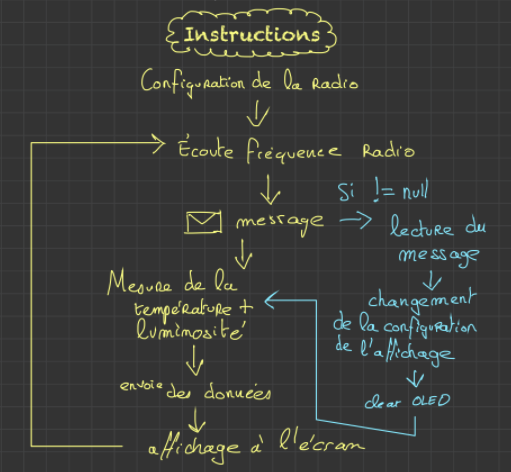 Instructions
Configuration de la Radio
Écoute fréquence Radio
Si != null
message
lecture du
message
changement
de la configuration
de l'affichage
clear OLED
Mesure de la
température +
luminosité
envoie des données
affichage à l'écran